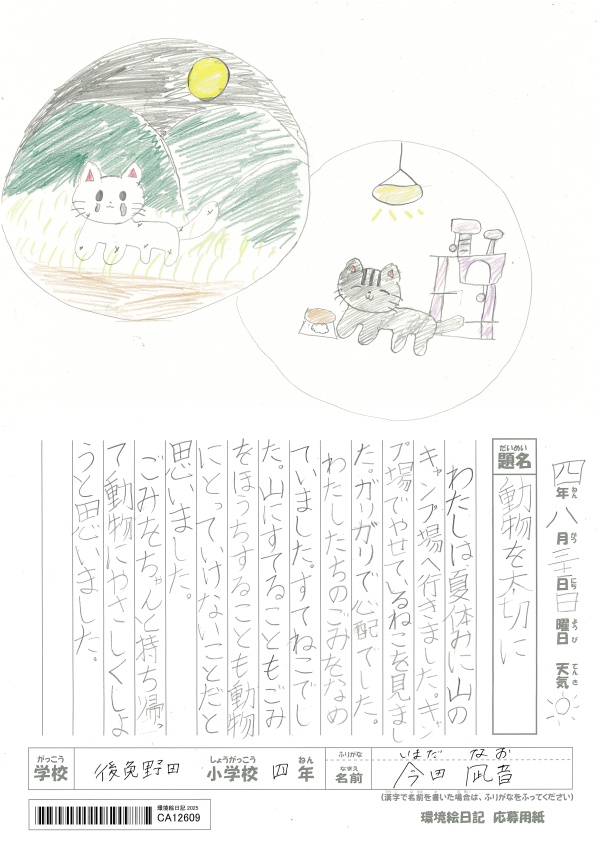 四年八月三十日日曜日 天気
ねん がつ にち ようび てんき
だいめい
題名
動物を大切に
わたしは、夏休みに山の
キャンプ場へ行きました。キャン
プ場でやせているねこを見まし
た。ガリガリで心配でした。
わたしたちのごみをなめ
ていました。すてねこでし
た。山にすてることもごみ
をほうちすることも動物
にとっていけないことだと
思いました。
ごみをちゃんと持ち帰っ
て動物にやさしくしよ
うと思いました。
がっこう しょうがっこう ねん
学校 後免野田 小学校 四年
ふりがな いまだ なお
なまえ
名前 今田 凪音
(漢字で名前を書いた場合は、ふりがなをふってください)
環境絵日記2025
CA12609
環境絵日記 応募用紙